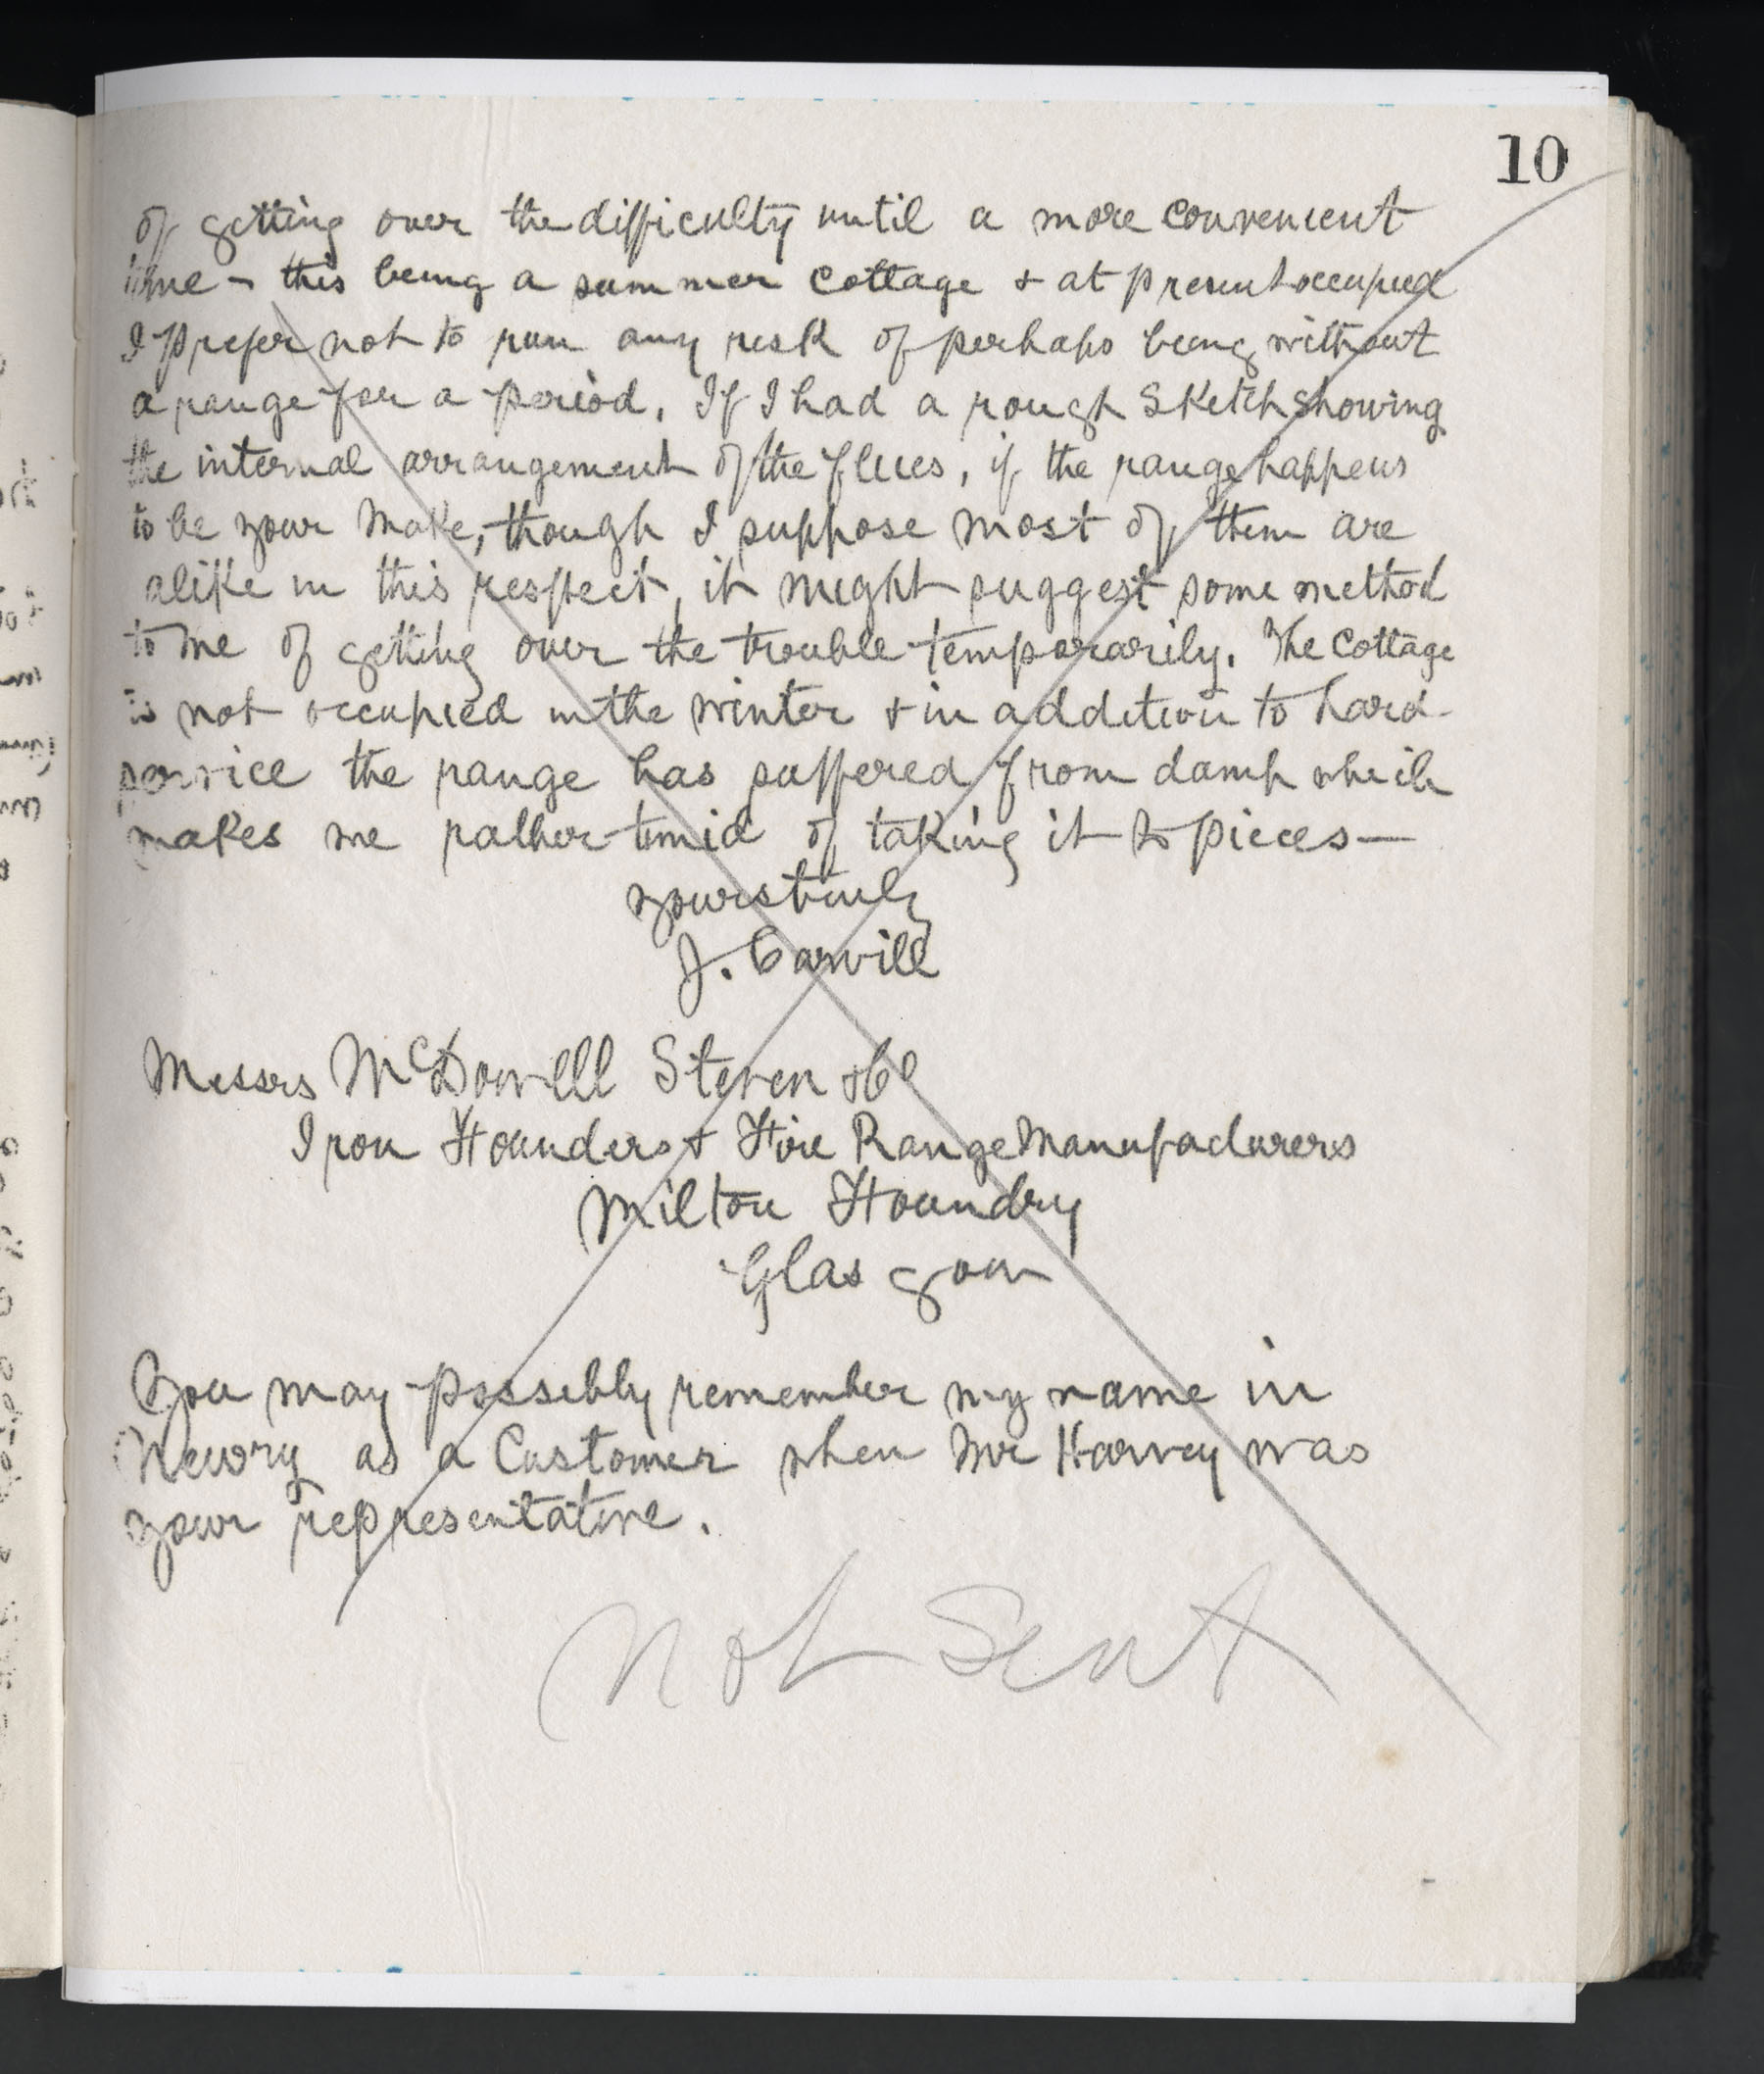 10
of getting over the difficulty until a more convenient
time - this being a summer cottage & at present occupied
I prefer not to run any risk of perhaps being without
a range for a period. If I had a rough sketch showing
the internal arrangement of the flues, if the range happens
to be your make, though I suppose most of them are
alike in this respect, it might suggest some method
to me of getting over the trouble temporarily. The cottage
is not occupied in the winter & in addition to hard
service the range has suffered from damp which
makes me rather timid of taking it to pieces—
yours truly
J. Carvill
Messrs McDowell Steven & Co
Iron Founders & Fire Range Manufacturers
Milton Foundry
Glasgow
You may possibly remember my name in
Newry as a Customer when Mr Harvey was
your representative.
Not Sent